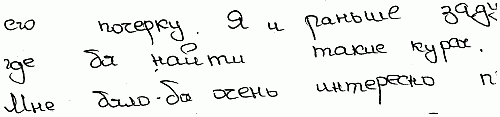 его почерку. Я и раньше заду
где бы найти такие курсы.
Мне было-бы очень интересно п